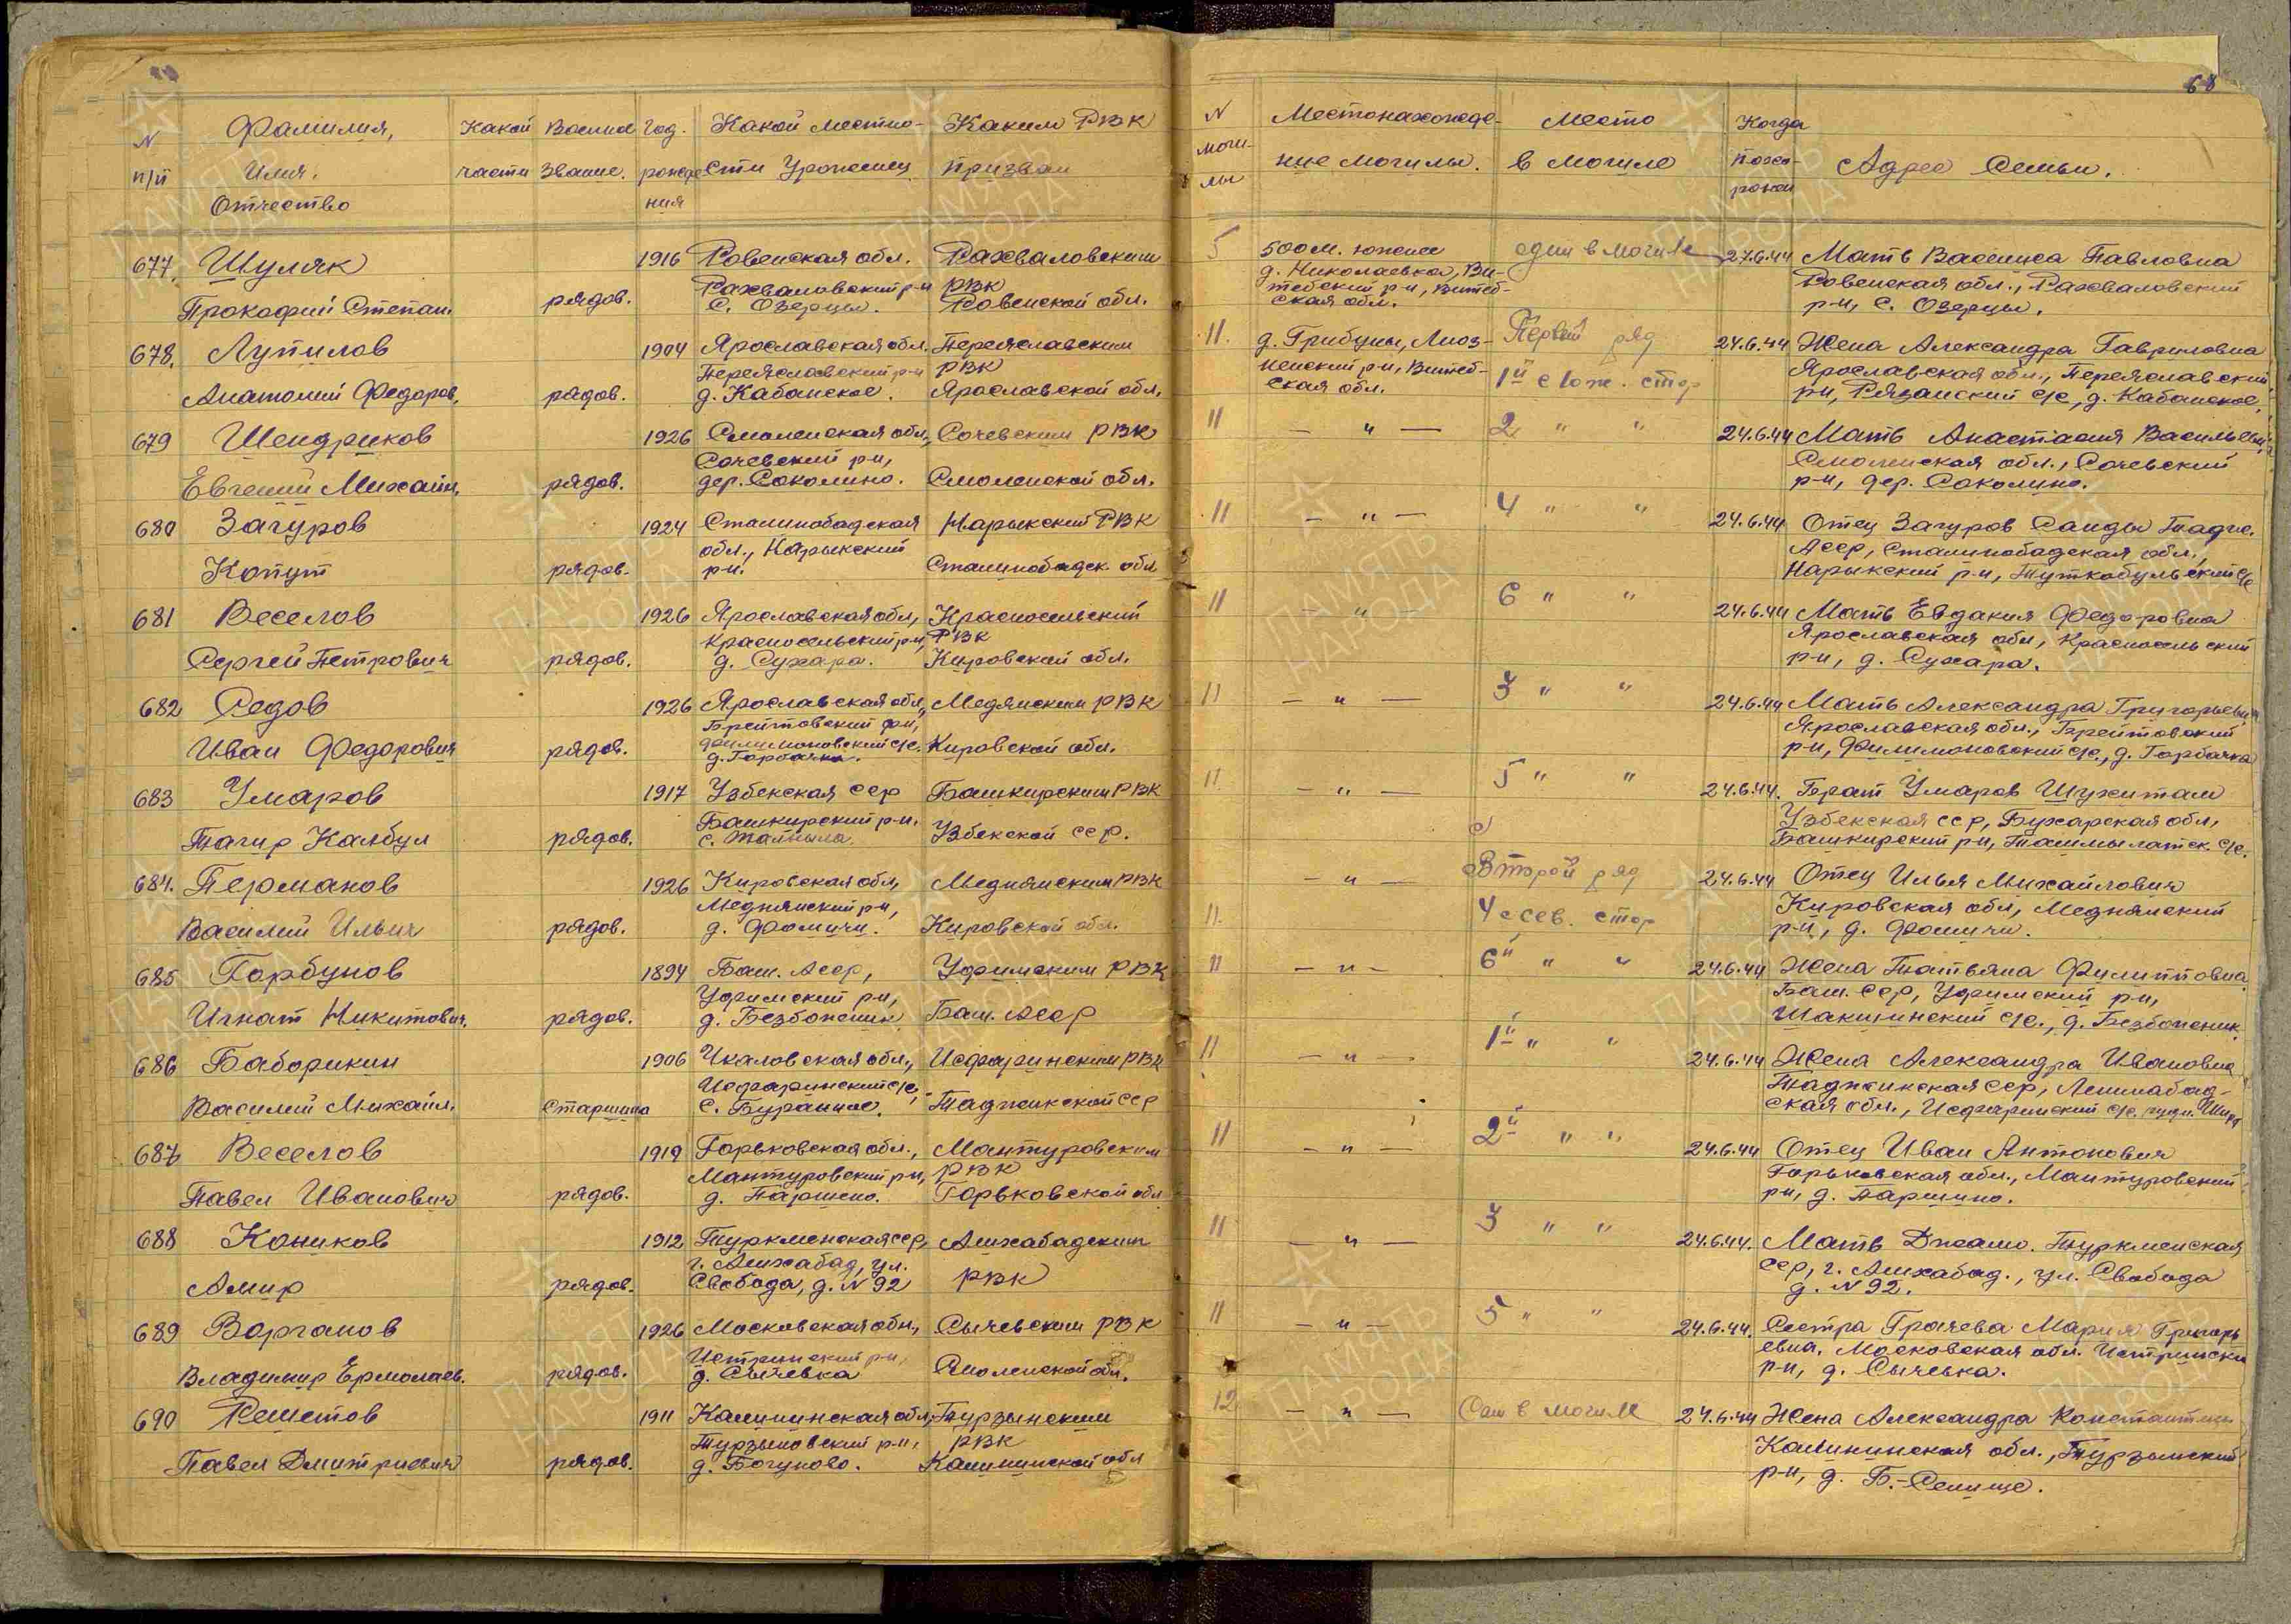 68
N п/п
Фамилия, Имя. Отчество
Какой части
Военное звание.
Год рождения
Какой местности уроженец
Каким РВК призван
N могилы
Местонахождение могилы.
Место в могиле
Когда похоронен
Адрес семьи.
677. Шуляк
Прокофий Степан.
рядов.
1916
Ровенская обл.
Рахваловский р-н
с. Озерцы.
Рахваловским
РВК
Ровенской обл.
5
500 м. южнее
д. Николаевка, Ви-
тебский р-н, Витеб-
ская обл.
один в могиле
27.6.44
Мать Васеинса Павловна
Ровенская обл., Рахваловский
р-н, с. Озерцы.
678. Лупилов
Анатолий Федоров.
рядов.
1904
Ярославская обл.
Переяславский р-н
д. Кабанское.
Переяславским
РВК
Ярославской обл.
11.
д. Грибуны, Лиоз-
ненский р-н, Витеб-
ская обл.
Первый ряд
1й с юж. стор
24.6.44
Жена Александра Гавриловна
Ярославская обл., Переяславский
р-н, Рязанский с/с, д. Кабанское.
679 Шендриков
Евгений Михайл.
рядов.
1926
Смоленская обл.,
Сочевский р-н,
дер. Соколино.
Сочевским РВК
Смоленской обл.
11
— " —
2 " "
24.6.44
Мать Анастасия Васильевн.
Смоленская обл., Сочевский
р-н, дер. Соколино.
680 Загуров
Копут
рядов.
1924
Сталинобадская
обл., Нарыкский
р-н.
Нарыкский РВК
Сталинобадск. обл
11
— " —
4 " "
24.6.44
Отец Загуров Саиды Тадж.
Асср, Сталинобадская обл.,
Нарыкский р-н, Туткабульский с/с
681 Веселов
Сергей Петрович
рядов.
1926
Ярославская обл,
Красносельский р-н,
д. Сухара.
Красносельский
РВК
Кировской обл.
11
— " —
6 " "
24.6.44
Мать Евдакия Федоровна
Ярославская обл, Красносельский
р-н, д. Сухара.
682 Седов
Иван Федорович
рядов.
1926
Ярославская обл.,
Брейтовский р-н,
Филимоновский с/с.
д. Горбачка.
Медянским РВК
Кировской обл.
11
— " —
3 " "
24.6.44
Мать Александра Григорьевн
Ярославская обл., Брейтовский
р-н, Филимоновский с/с., д. Горбачка
683 Умаров
Тагир Калбул
рядов.
1917
Узбекская сср
Башкирский р-н.
Башкирским РВК
Узбекской сср.
11
— " —
5 " "
24.6.44.
Брат Умаров Шухитам
Узбекская сср, Бухарская обл,
Башкирский р-н, Ташмылатск. с/с.
684. Перманов
Василий Ильич
рядов.
1926
Кировская обл,
Меднянский р-н,
д. Фомичи.
Меднянским РВК
Кировской обл.
11.
— " —
Второй ряд
4 с сев. стор
24.6.44
Отец Илья Михайлович
Кировская обл, Меднянский
р-н, д. Фомичи.
685 Горбунов
Игнат Никитович.
рядов.
1894
Баш. Асср,
Уфимский р-н,
д. Безбожник
Уфимским РВК
Баш. Асср
11
— " —
6й " "
24.6.44
Жена Татьяна Филипповна
Баш. сср, Уфимский р-н,
Шакшинский с/с., д. Безбожник.
686 Баборикин
Василий Михайл.
Старшина
1906
Чкаловская обл.,
Исфаринский с/с,
с. Буранное.
Исфаринским РВК
Таджикской сср
11
— " —
1й " "
24.6.44
Жена Александра Ивановна
Таджикская сср, Ленинабад-
ская обл., Исфаринский с/с.
687 Веселов
Павел Иванович
рядов.
1919
Горьковская обл.,
Мантуровский р-н,
д. Паршино.
Мантуровским
РВК
Горьковской обл
11
— " —
2й " "
24.6.44
Отец Иван Антонович
Горьковская обл., Мантуровский
р-н, д. Паршино.
688 Коников
Амир
рядов.
1912
Туркменская сср,
г. Ашхабад, ул.
Свобода, д. N 92
Ашхабадским
РВК
11
— " —
3 " "
24.6.44.
Мать Джамо. Туркменская
сср, г. Ашхабад., ул. Свобода
д. N 92.
689 Варганов
Владимир Ермолаев.
рядов.
1926
Московская обл.,
Истринский р-н,
д. Сычевка
Сычевским РВК
Смоленской обл.
11
— " —
5 " "
24.6.44.
Сестра Грачева Мария Григорь
евна, Московская обл. Истрински
р-н, д. Сычевка.
690 Решетов
Павел Дмитриевич
рядов.
1911
Калининская обл,
Турзыновский р-н,
д. Богуново.
Турзынским
РВК
Калининской обл
12
— " —
Сам в могиле
24.6.44
Жена Александра Константин
Калининская обл., Турзынский
р-н, д. Б.-Селище.